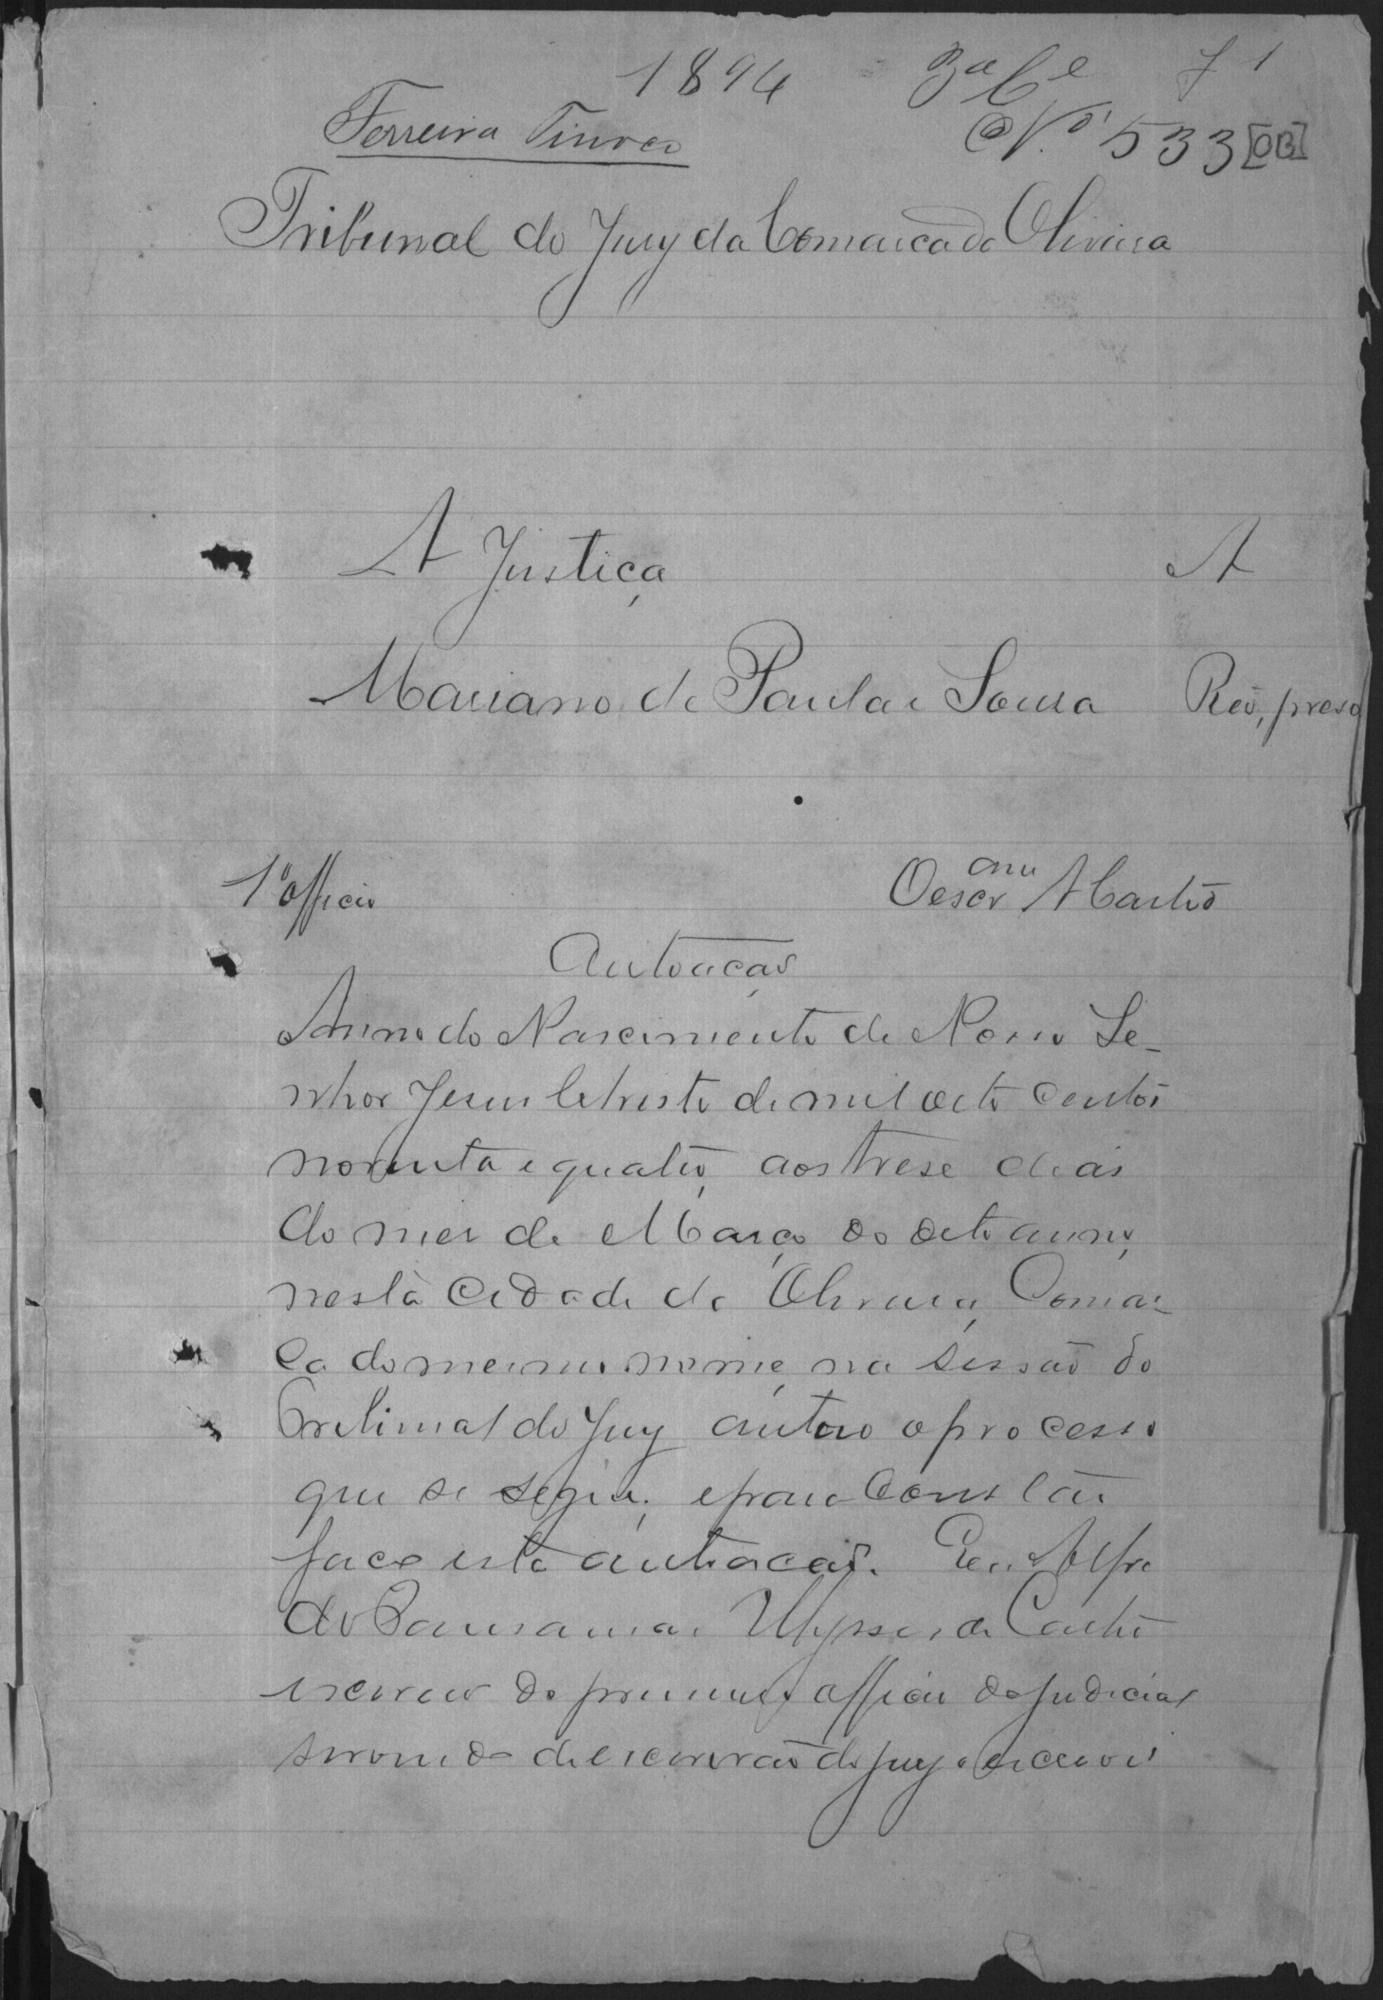 1894 3ª Cª f 1
Ferreira Tinoco Nº 533 [OB]
Tribunal do Jury da Comarca de Oliveira
A Justiça A
Mariano de Paula e Sousa Réo, preso
1º officio O escr. Castro
Autoação
Anno do Nascimento de Nosso Se-
nhor Jesus Christo de mil oito centos
noventa e quatro, aos trese dias
do mes de Março do dito anno,
nesta cidade de Oliveira, Comar-
ca do mesmo nome, na sessão do
Tribunal do Jury autuo o processo
que se segue, e para constar
faço esta autoação. Eu Alfre
do Ulysses de Castro
escrivão do primeiro officio do judicial
servindo de escrivão do jury o escrevi